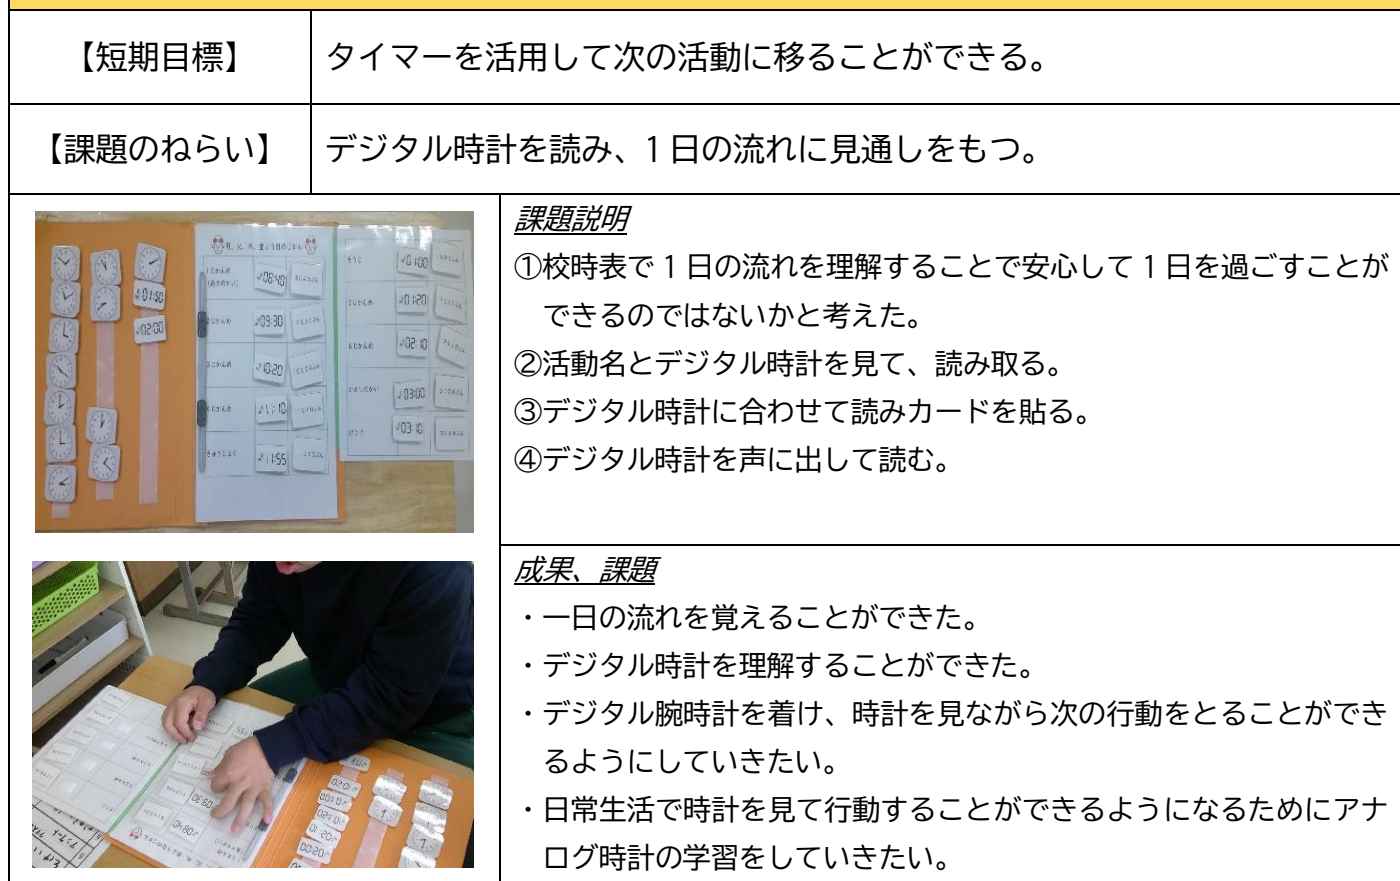 【短期目標】
タイマーを活用して次の活動に移ることができる。
【課題のねらい】
デジタル時計を読み、1日の流れに見通しをもつ。
月、火、水、金よう日のじかん
1じかんめ
08:40
2じかんめ
09:30
3じかんめ
10:20
4じかんめ
11:10
きゅうしょく
11:55
そうじ
01:00
5じかんめ
01:20
6じかんめ
02:10
03:00
03:10
01:50
02:00
課題説明
①校時表で1日の流れを理解することで安心して1日を過ごすことが
できるのではないかと考えた。
②活動名とデジタル時計を見て、読み取る。
③デジタル時計に合わせて読みカードを貼る。
④デジタル時計を声に出して読む。
成果、課題
・一日の流れを覚えることができた。
・デジタル時計を理解することができた。
・デジタル腕時計を着け、時計を見ながら次の行動をとることができ
るようにしていきたい。
・日常生活で時計を見て行動することができるようになるためにアナ
ログ時計の学習をしていきたい。